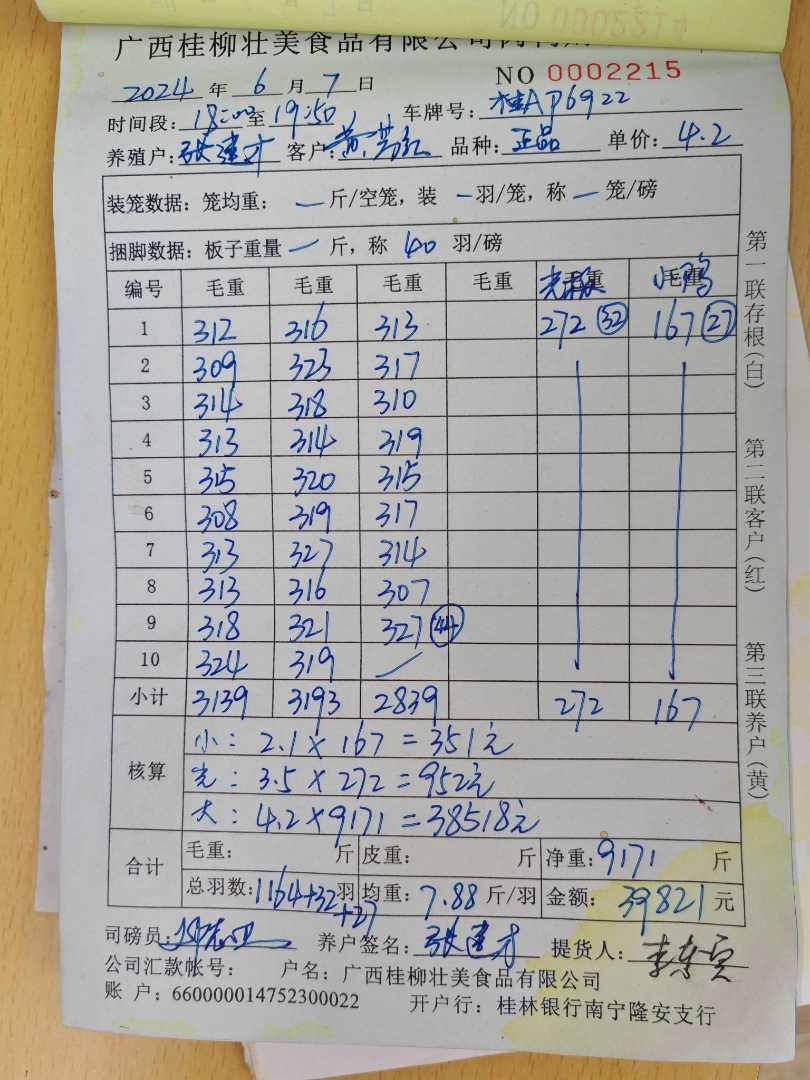 NO 0002214
广西桂柳壮美食品有限公司
NO 0002215
2024 年 6 月 7 日
时间段: 18:00 至 19:50 车牌号: 桂AP6922
养殖户: 张建才 客户: 黄 品种: 正品 单价: 4.2
装笼数据: 笼均重: — 斤/空笼, 装 — 羽/笼, 称 — 笼/磅
捆脚数据: 板子重量 — 斤, 称 40 羽/磅
编号 毛重 毛重 毛重 毛重 毛重 毛重
光板 小鸭
1 312 316 313 272 (32) 167 (27)
2 309 323 317
3 314 318 310
4 313 314 319
5 315 320 315
6 308 319 317
7 313 327 314
8 313 316 307
9 318 321 327 (44)
10 324 319 —
小计 3139 3193 2839 272 167
核算 小: 2.1 × 167 = 351元
光: 3.5 × 272 = 952元
大: 4.2 × 9171 = 38518元
合计 毛重: 斤 皮重: 斤 净重: 9171 斤
总羽数: 1164+32+27 羽 均重: 7.88 斤/羽 金额: 39821 元
司磅员: 养户签名: 张建才 提货人:
公司汇款帐号: 户名: 广西桂柳壮美食品有限公司
账 户: 660000014752300022 开户行: 桂林银行南宁隆安支行
第一联存根(白) 第二联客户(红) 第三联养户(黄)